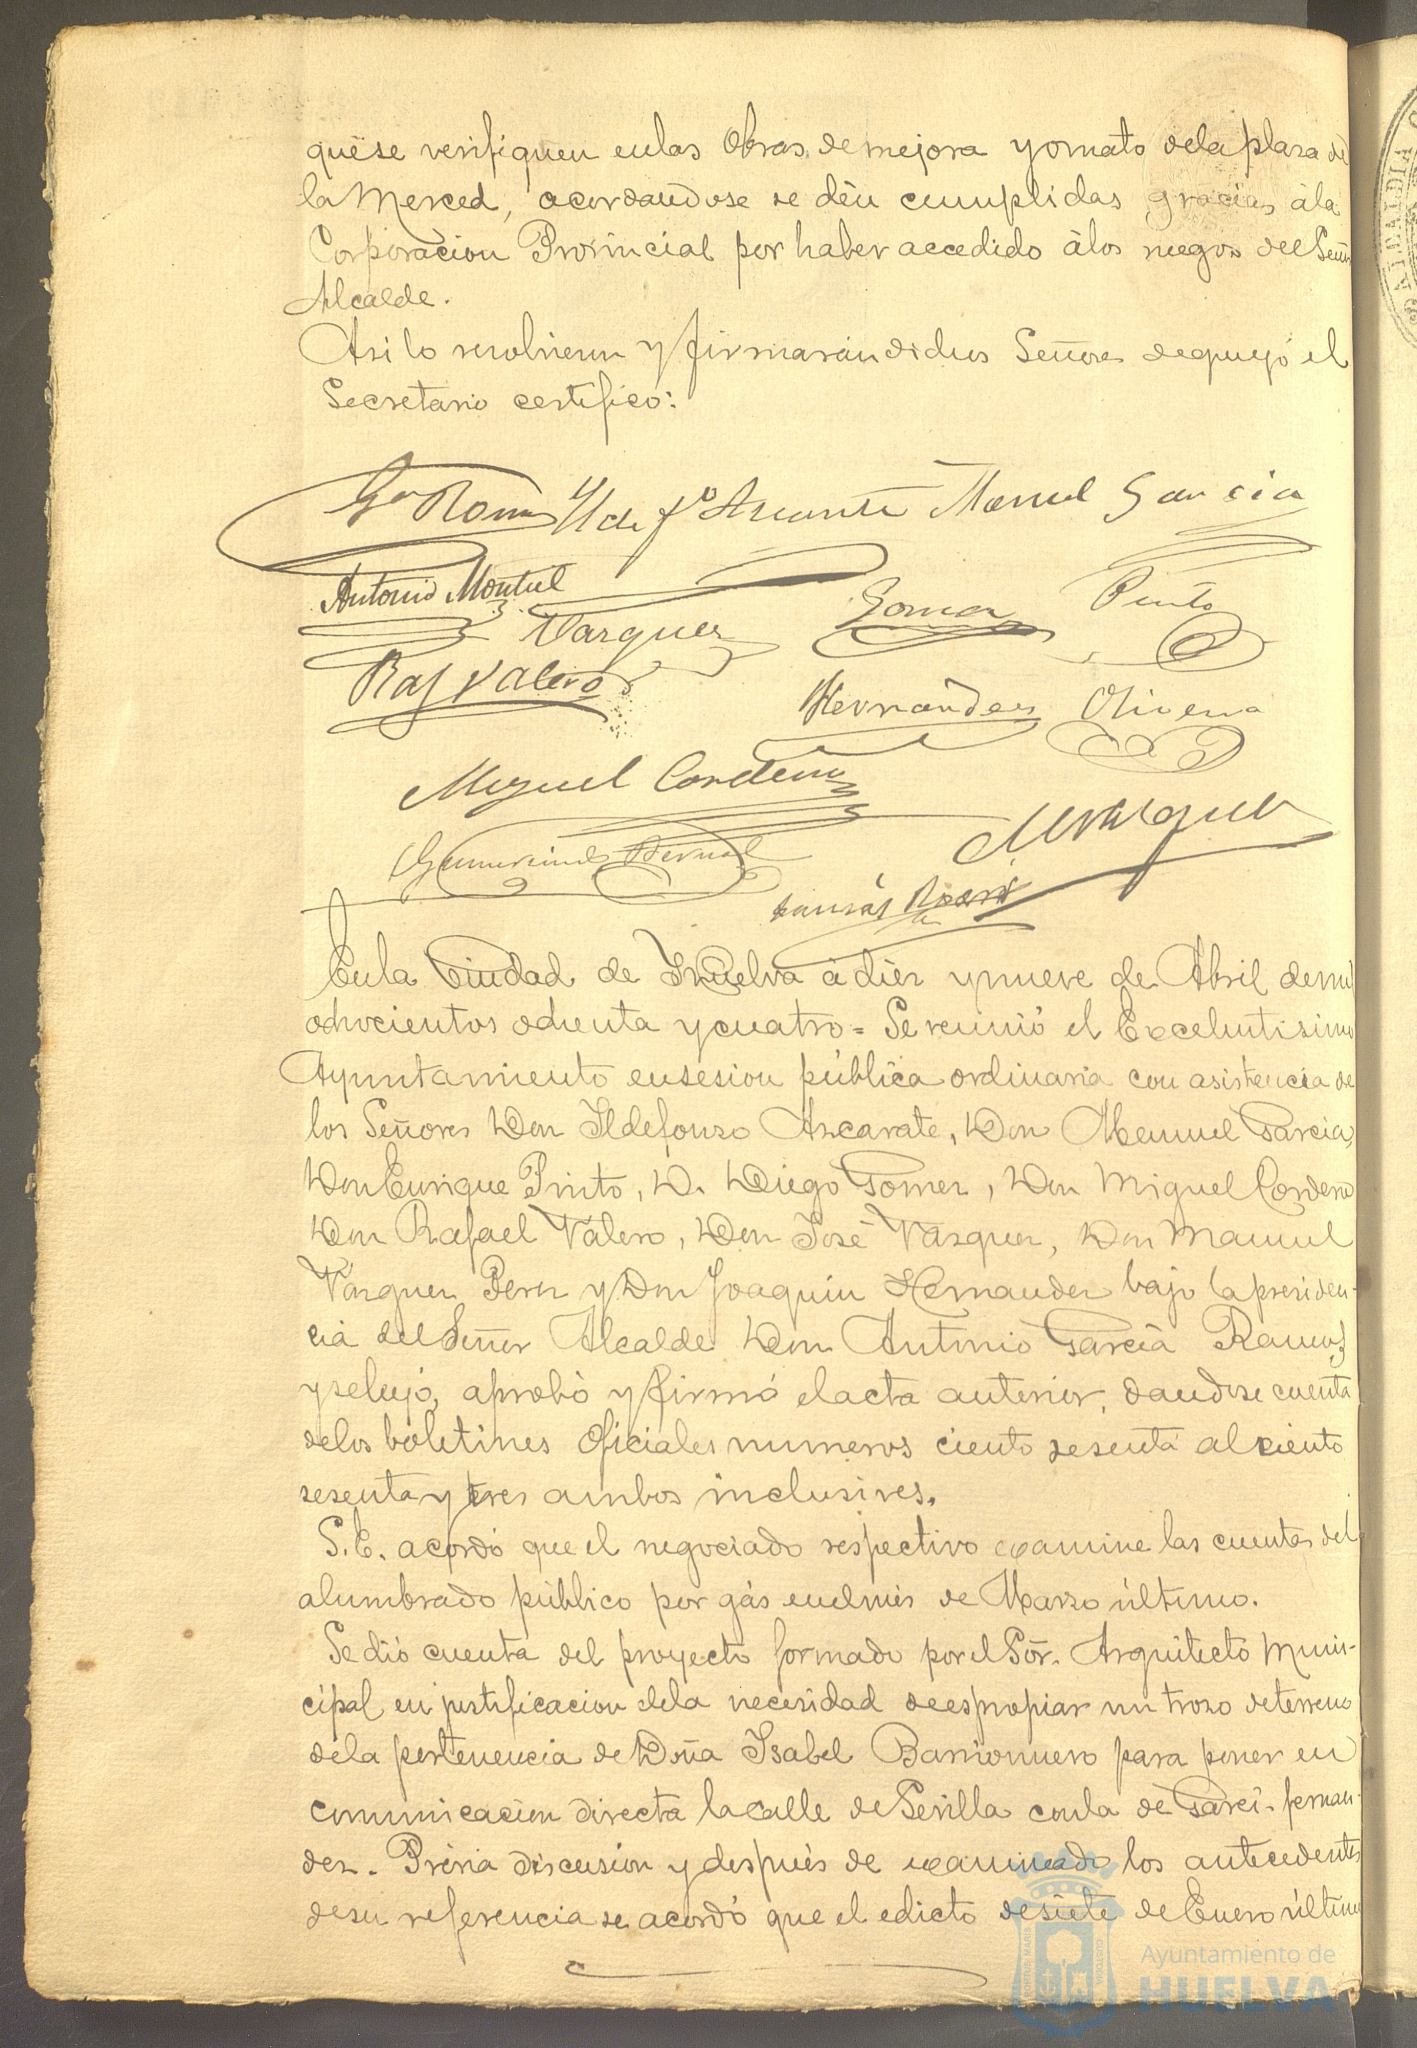 que se verifiquen en las Obras de mejora y ornato de la plaza de
la Merced, acordandose se dén cumplidas gracias á la
Corporacion Provincial por haber accedido á los ruegos del Señor
Alcalde.
Asi lo resolvieron y firmarán dichos Señores de que yó el
Secretario certifico:
Ga Ramos Ildefo Azcarate Manuel Garcia
Antonio Montiel
Vazquez Gomez Pinto
Raf Valero
Hernandez Olivera
Miguel Cordero
M Vazquez
Gumersindo Bernal
En la Ciudad de Huelva á diez y nueve de Abril de mil
ochocientos ochenta y cuatro = Se reunió el Excelentisimo
Ayuntamiento en sesion pública ordinaria con asistencia de
los Señores Don Ildefonso Azcarate, Don Manuel Garcia,
Don Enrique Pinto, D. Diego Gomez, Don Miguel Cordero
Don Rafael Valero, Don José Vazquez, Don Manuel
Vazquez Perez y Don Joaquin Hernandez bajo la presiden-
cia del Señor Alcalde Don Antonio Garcia Ramos,
y se leyó, aprobó y firmó el acta anterior, dandose cuenta
de los boletines Oficiales numeros ciento sesenta al ciento
sesenta y tres ambos inclusives.
S.E. acordó que el negociado respectivo examine las cuentas del
alumbrado público por gás en el mes de Marzo último.
Se dió cuenta del proyecto formado por el Sõr. Arquitecto Muni-
cipal en justificacion de la necesidad de espropiar un trozo de terreno
de la pertenencia de Doña Isabel Barrionuevo para poner en
comunicacion directa la calle de Sevilla con la de Garci-fernan-
dez. Prévia discusion y después de examinado los antecedentes
de su referencia se acordó que el edicto de siete de Enero último
Ayuntamiento de
HUELVA